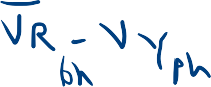 V̅R_bh - VY_ph